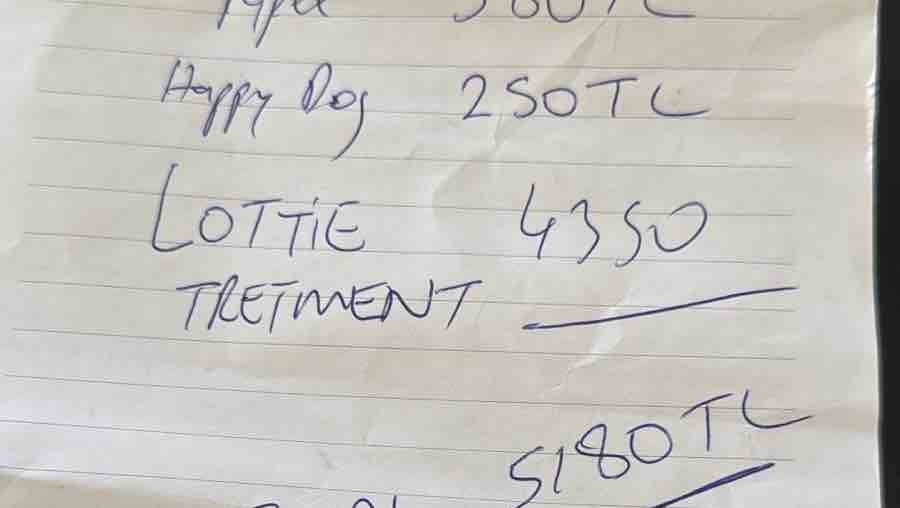 Happy Dog 250TL
LOTTIE 4350
TRETMENT
5180TL